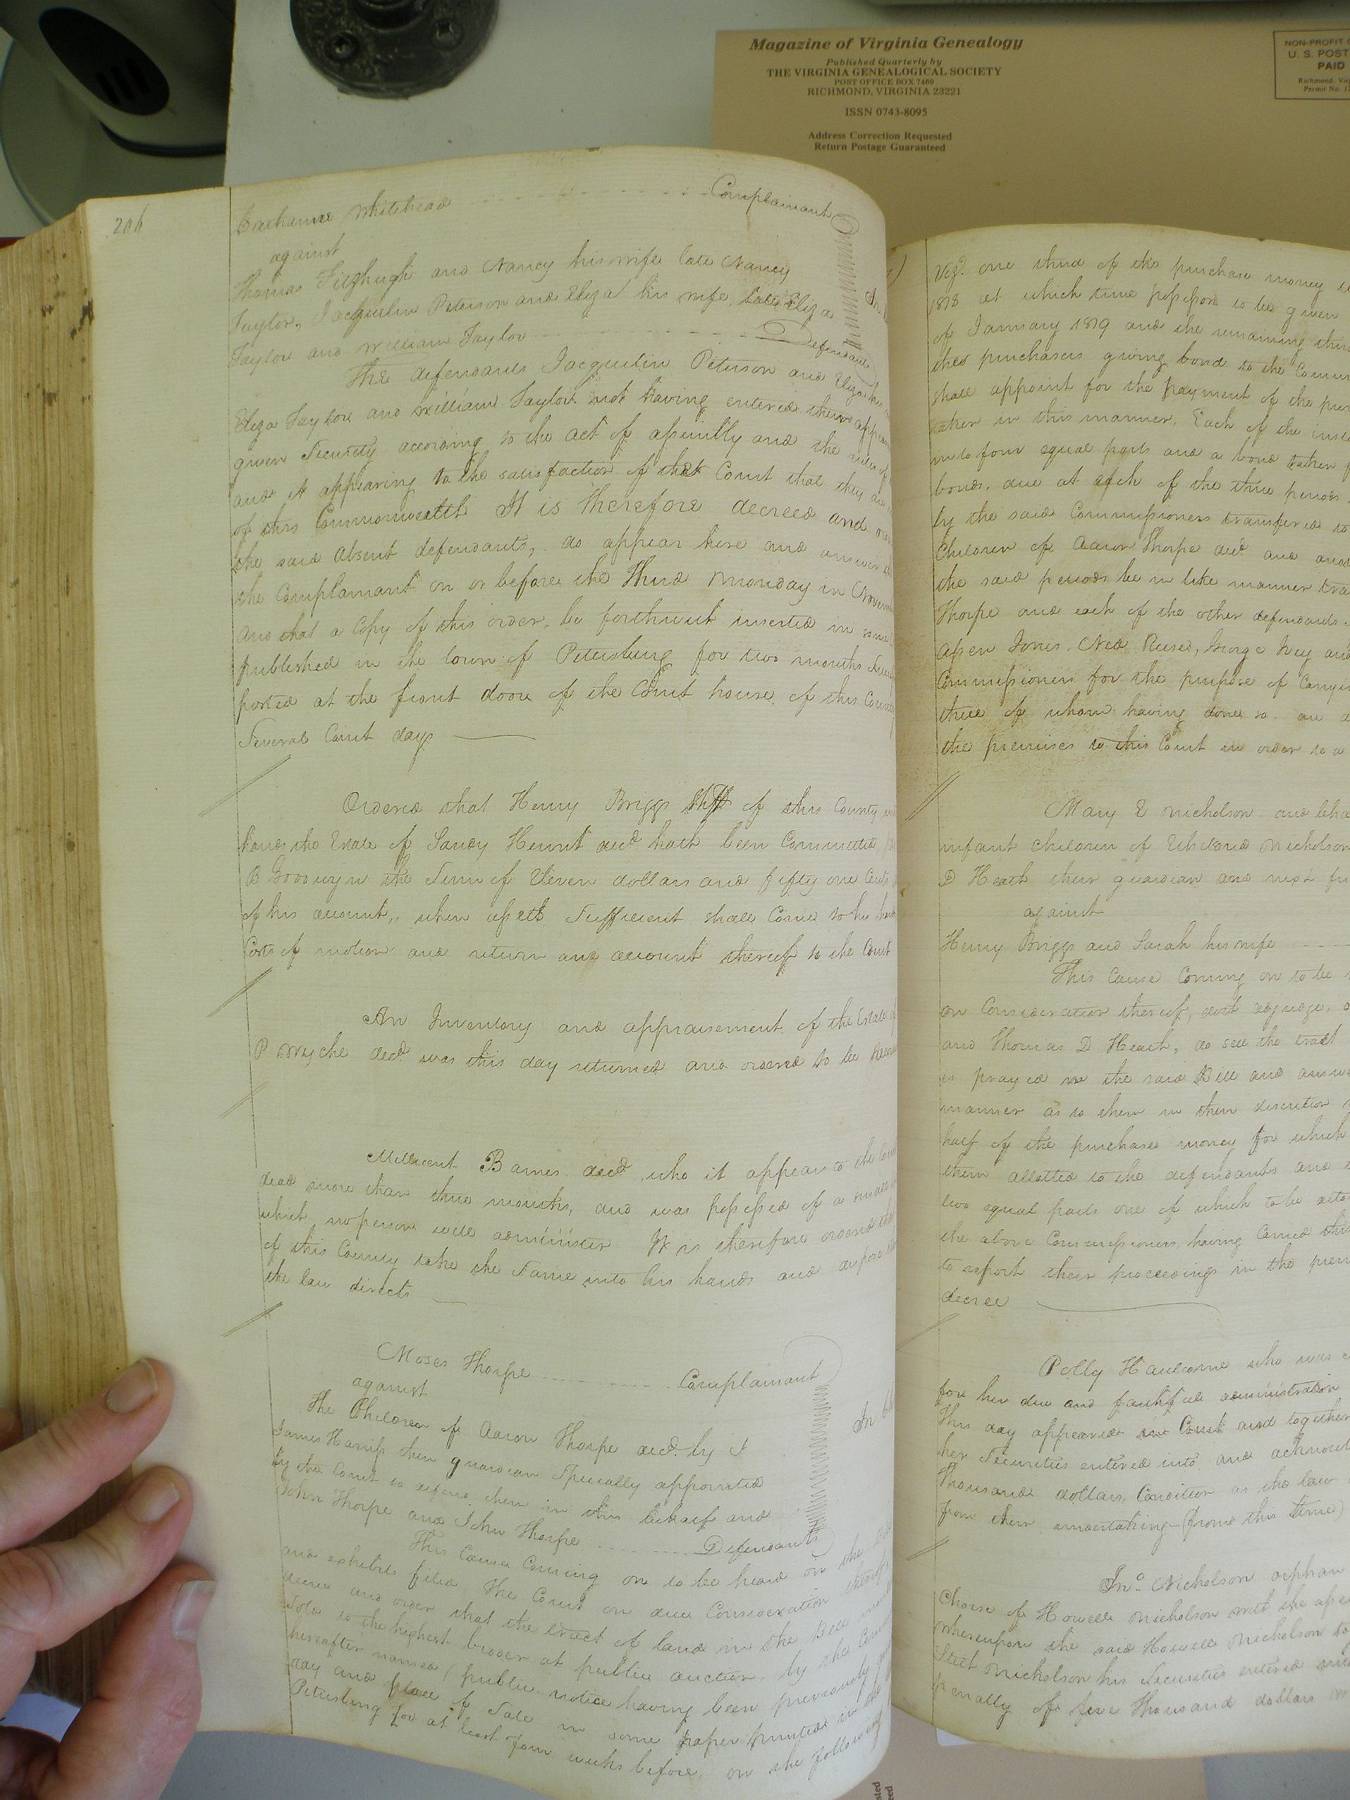 Magazine of Virginia Genealogy
Published Quarterly by
THE VIRGINIA GENEALOGICAL SOCIETY
POST OFFICE BOX 7469
RICHMOND, VIRGINIA 23221
ISSN 0743-8095
Address Correction Requested
Return Postage Guaranteed
NON-PROFIT
U. S. POST
PAID
Richmond, Va
Permit No.
206
Whitehead Complainant
against
Thomas Fitzhugh and Nancy his wife late Nancy
Taylor, Jacquelin Peterson and Eliza his wife, late Eliza
Taylor and William Taylor Defendants
The defendants Jacquelin Peterson and Eliza his
Eliza Taylor and William Taylor not having entered their appear
given Security according to the act of assembly and the rules of
and it appearing to the satisfaction of the Court that they are
of this Commonwealth It is therefore decreed and
the said absent defendants, do appear here and answer
the Complainant on or before the third Monday in Novem
and that a Copy of this order, be forthwith inserted in some
published in the town of Petersburg for two months
posted at the front door of the Court house of this County
Several Court days
Ordered that Henry Briggs Shff of this County
hands the Estate of Hewit decd hath been Committed
B Goodwyn the Sum of Eleven dollars and fifty one Cents
of his account, when assets Sufficient shall Come to his hands
Costs of motion and return an account thereof to the Court
An Inventory and appraisement of the Estate of
P Wyche decd was this day returned and ordered to be
Millicent Barnes decd who it appears to the Court
dead more than three months, and was possessed of a small
which no person will administer It is therefore ordered that
of this County take the Same into his hands and dispose
the law directs
Moses Thorpe Complainant
against
The Children of Aaron Thorpe decd by
James Hamp their guardian Specially appointed
by the Court to defend them in this behalf and
John Thorpe and John Thorpe Defendants
In
This Cause Coming on to be heard on the
and exhibits filed The Court on due Consideration thereof
decree and order that the tract of land in the Bill
Sold to the highest bidder at public auction by the Comm
hereafter named (public notice having been previously
day and place of Sale in some paper printed in
Petersburg for at least four weeks before, on the following
Vizt. one third of the purchase money
1818 at which time possession to be given
of January 1819 and the remaining third
the purchasers giving bond to the Comm
shall appoint for the payment of the pur
taken in this manner. Each of the inst
into four equal parts and a bond taken
bonds, due at each of the three periods
by the said Commissioners transfered to
Children of Aaron Thorpe decd and
the said periods be in like manner tra
Thorpe and each of the other defendants.
Jones, Ned Reese, George Ivey and
Commissioners for the purpose of Carryin
three of whom having done so.
the premises to this Court in order to a
Mary E Nicholson and
infant Children of Nicholson
D Heath their guardian and next fri
against
Henry Briggs and Sarah his wife
This Cause Coming on to be
on Consideration thereof, doth adjudge,
and Thomas D Heath, do see the tract
is prayed in the said Bill and answ
manner as to them in their discretion
half of the purchase money for which
them allotted to the defendants and
two equal parts one of which to be
the above Commissioners having Carried this
to report their proceedings in the prem
decree
Polly who was
for her due and faithful administration
This day appeared in Court and together
her Securities entered into and acknow
Thousand dollars, Condition as the law
from their undertaking (from this time)
Jno. Nicholson orphan
Choice of Howell Nicholson with the
whereupon the said Howell Nicholson
Nicholson his Securities entered into
penalty of five Thousand dollars